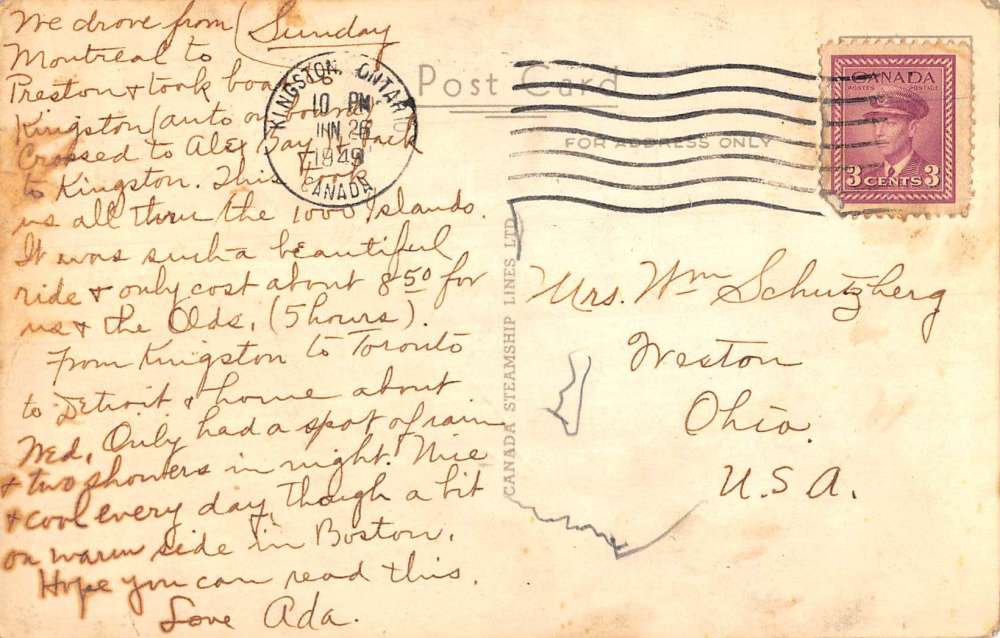 We drove from (Sunday
Montreal to
Preston & took boat
Kingston (auto on
Crossed to Alex Bay & back
to Kingston. This took
us all thru the 1000 Islands.
It was such a beautiful
ride & only cost about 8 50 for
us & the Olds. (5 hours).
From Kingston to Toronto
to Detroit & home about
Wed. Only had a spot of rain
& two showers in night. Nice
& cool every day, though a bit
on warm side in Boston.
Hope you can read this.
Love Ada.
KINGSTON, ONTARIO
10 PM
JUN 26
1949
CANADA
Post Card
FOR ADDRESS ONLY
CANADA
POSTES POSTAGE
3 CENTS 3
CANADA STEAMSHIP LINES LTD.
Mrs. Wm Schutzberg
Weston
Ohio.
U.S.A.